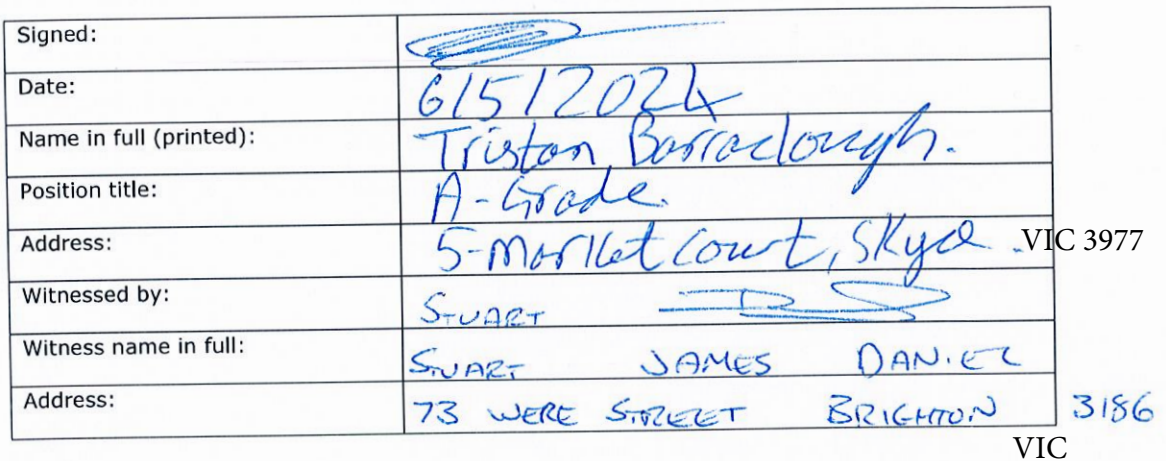 Signed:
Date: 6/5/2024
Name in full (printed): Tristan Barraclough.
Position title: A-Grade.
Address: 5-Market Court, Skye. VIC 3977
Witnessed by: STUART
Witness name in full: STUART JAMES DANIEL
Address: 73 WERE STREET BRIGHTON 3186
VIC